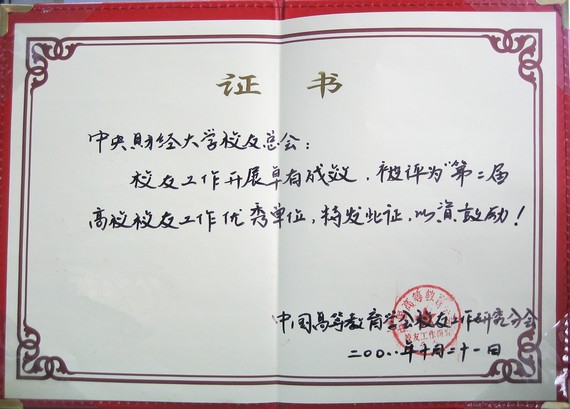 证 书
中央财经大学校友总会：
校友工作开展卓有成效，被评为“第二届
高校校友工作优秀单位，特发此证，以资鼓励！
中国高等教育学会校友工作研究分会
二〇〇八年十月二十一日